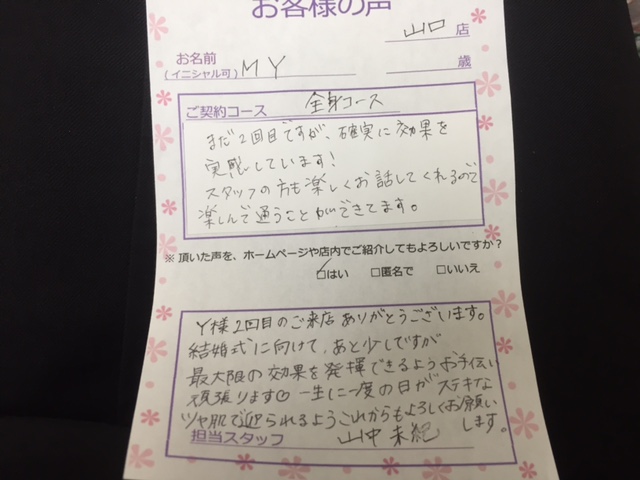 お客様の声
山口 店
お名前
(イニシャル可) MY 歳
ご契約コース 全身コース
まだ2回目ですが、確実に効果を
実感しています!
スタッフの方も楽しくお話してくれるので
楽しんで通うことができてます。
※ 頂いた声を、ホームページや店内でご紹介してもよろしいですか?
□はい □匿名で □いいえ
Y様2回目のご来店ありがとうございます。
結婚式に向けて、あと少しですが
最大限の効果を発揮できるようお手伝い
頑張ります♡ 一生に一度の日がステキな
ツヤ肌で迎られるようこれからもよろしくお願い
します。
担当スタッフ 山中 未紀